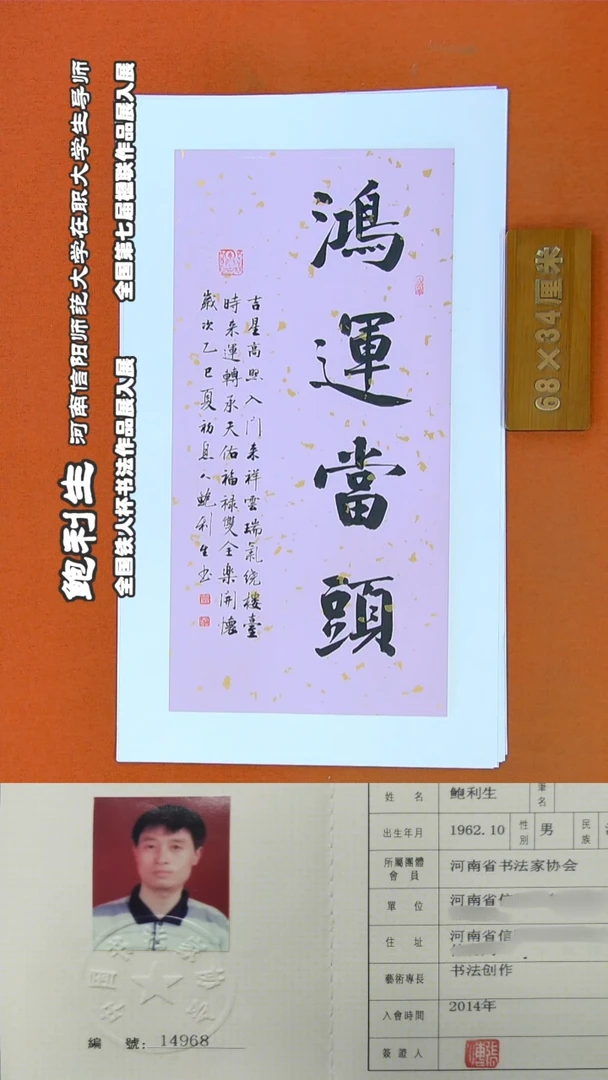 鲍利生 河南信阳师范大学在职大学生导师
全国铁人杯书法作品展入展 全国第七届楹联作品展入展
鴻運當頭
吉星高照入門來祥雲瑞氣绕樓臺
時来運轉承天佑福禄雙全樂開懷
歲次乙巳夏初息人鲍利生书
68×34厘米
姓 名 鲍利生 筆名
出生年月 1962.10 性別 男 民族
所屬團體會員 河南省书法家协会
單 位 河南省信
住 址 河南省信
藝術專長 书法创作
入會時間 2014年
簽證人
編 號: 14968